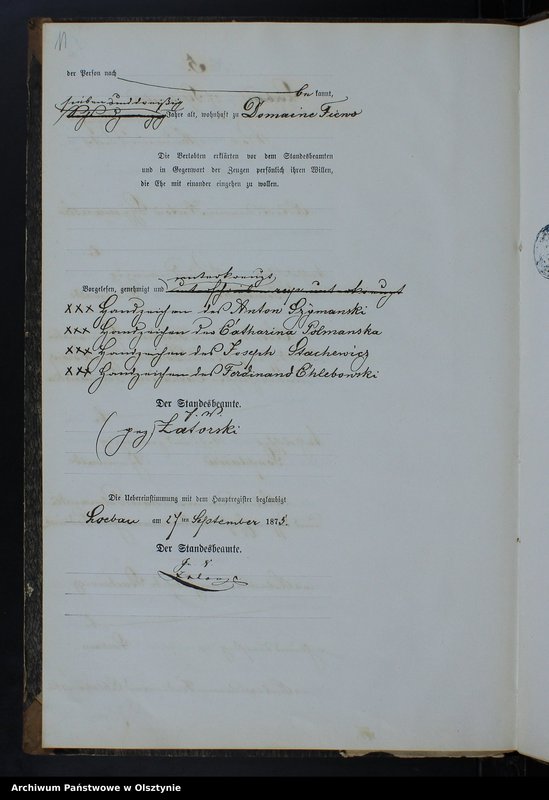 11
der Person nach be kannt,
sieben und dreißig
Jahre alt, wohnhaft zu Domaine Fiewo
Die Verlobten erklärten vor dem Standesbeamten
und in Gegenwart der Zeugen persönlich ihren Willen,
die Ehe mit einander eingehen zu wollen.
unterkreuzt,
Vorgelesen, genehmigt und
XXX Handzeichen des Anton Szymanski
XXX Handzeichen der Catharina Polmanska
XXX Handzeichen des Joseph Stachewicz
XXX Handzeichen des Ferdinand Chlebowski
Der Standesbeamte.
J. V.
(gez) Zatorski
Die Uebereinstimmung mit dem Hauptregister beglaubigt
Loebau am 27 ten September 1875.
Der Standesbeamte.
Archiwum Państwowe w Olsztynie